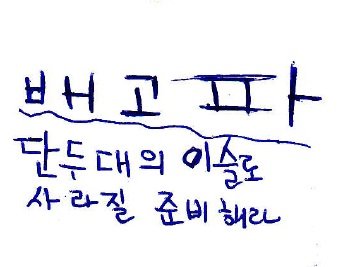 배고파
단두대의 이슬로
사라질 준비해라